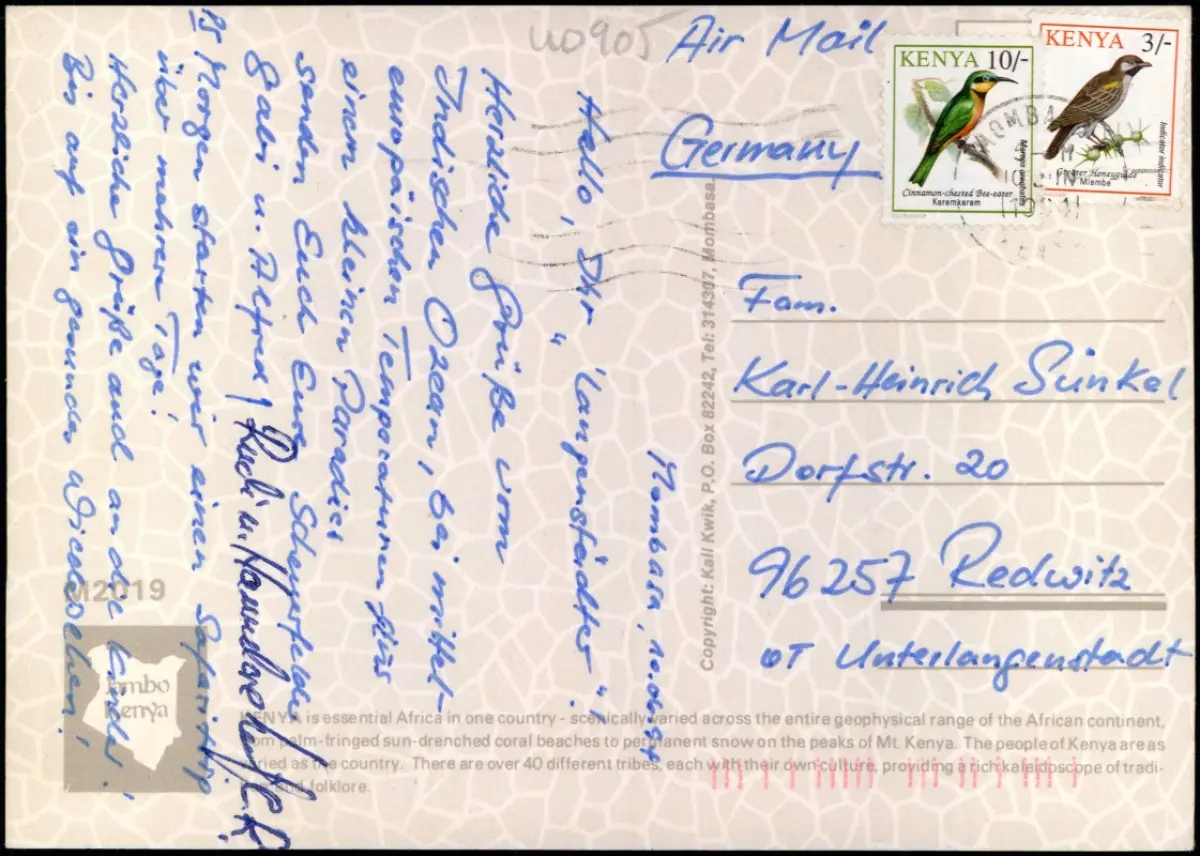 U0905
Air Mail
Germany
KENYA 10/-
Cinnamon-chested Bee-eater
Keremkerem
KENYA 3/-
Indicator indicator
Greater Honeyguide
Mlembe
MOMBASA
Mombasa, 10.06.94
Hallo, Ihr "Langenstädter"!
Herzliche Grüße vom
Indischen Ozean, bei mittel-
europäischen Temperaturen fürs
einem kleinen Paradies
senden Euch Eure Scheyrfelder
Gabi u. Alfred /
Rudi u.
PS Morgen starten wir einen Safaritrip
über mehrere Tage!
Herzliche Grüße auch an die Kinder!
Bis auf ein gesundes Wiedersehen!
Fam.
Karl-Heinrich Sünkel
Dorfstr. 20
96257 Redwitz
OT Unterlangenstadt
Copyright: Kall Kwik, P.O. Box 82242, Tel: 314307, Mombasa.
M2019
Jambo
Kenya
KENYA is essential Africa in one country - scenically varied across the entire geophysical range of the African continent,
from palm-fringed sun-drenched coral beaches to permanent snow on the peaks of Mt. Kenya. The people of Kenya are as
varied as the country. There are over 40 different tribes, each with their own culture, providing a rich kaleidoscope of tradi-
tion and folklore.